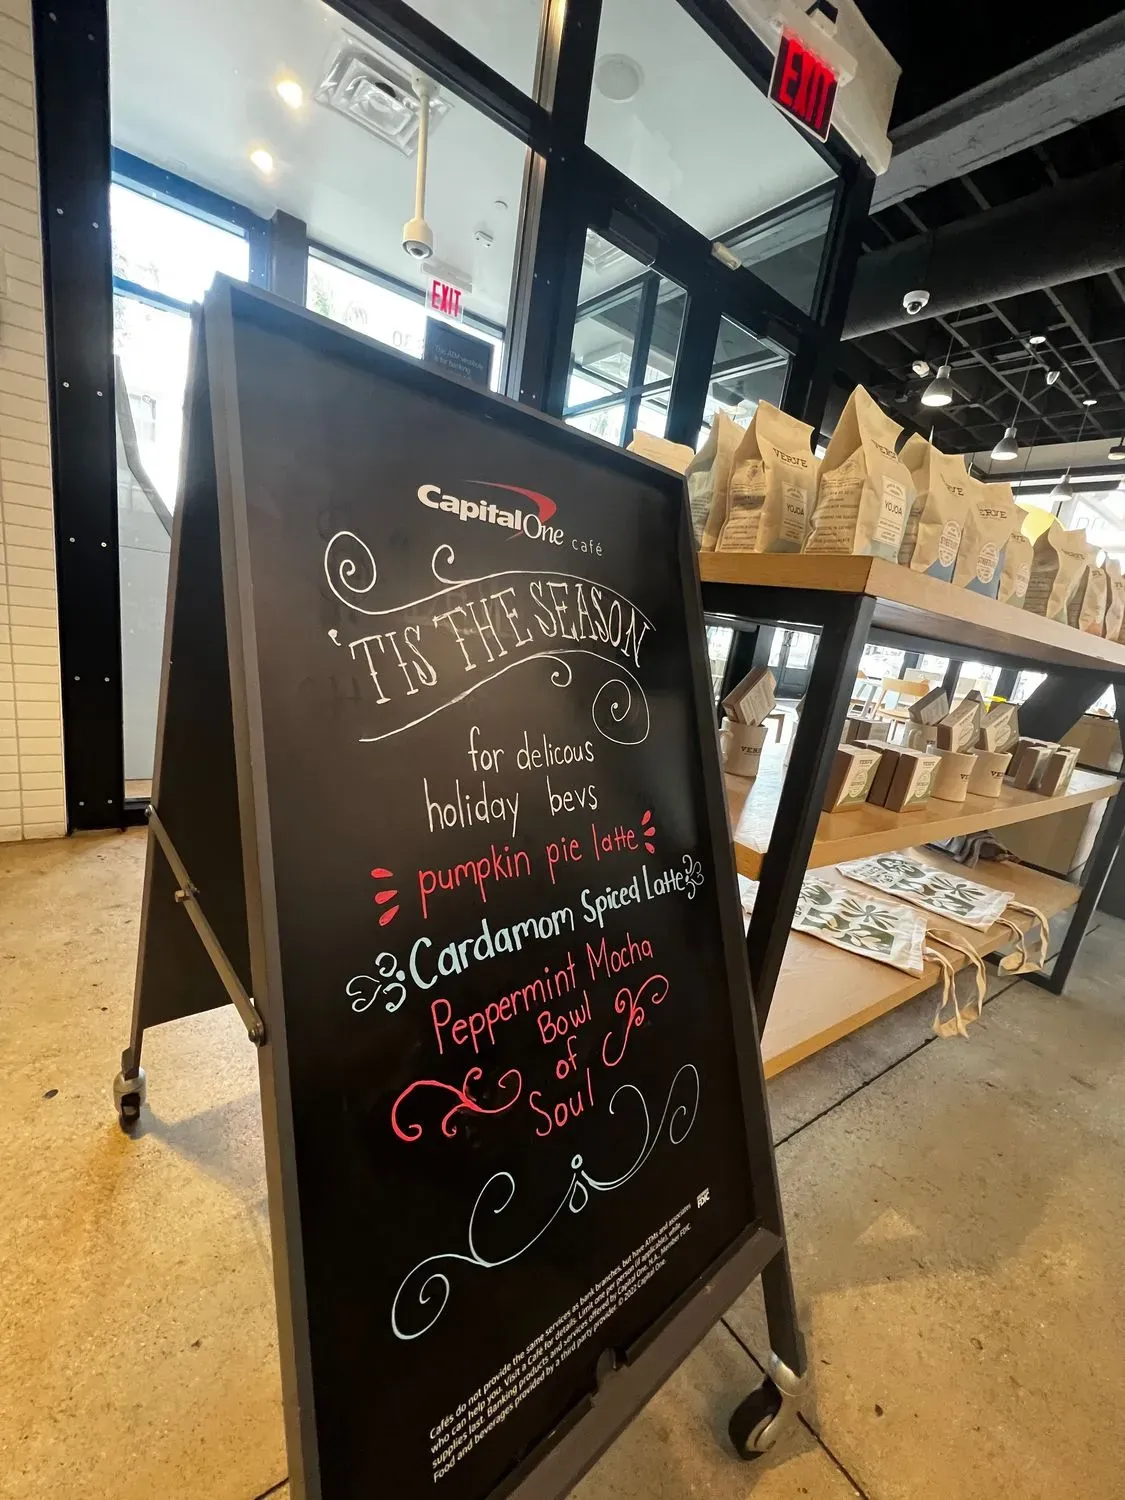 EXIT
EXIT
This ATM vestibule
is for banking
CapitalOne café
'TIS THE SEASON
for delicous
holiday bevs
pumpkin pie latte
Cardamom Spiced Latte
Peppermint Mocha
Bowl
of
Soul
FDIC
Cafés do not provide the same services as bank branches, but have ATMs and associates
who can help you. Visit a Café for details. Limit one per person (if applicable), while
supplies last. Banking products and services offered by Capital One, N.A., Member FDIC.
Food and beverages provided by a third party provider. © 2022 Capital One.
VERVE
YOJOA
VERVE
YOJOA
VERVE
STREETLEVEL
VERVE
STREETLEVEL
VERVE
VERVE
VERVE